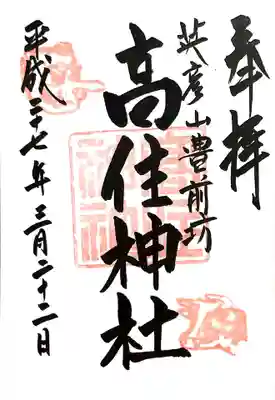 奉拝
英彦山豊前坊
高住神社
平成二十七年三月二十二日